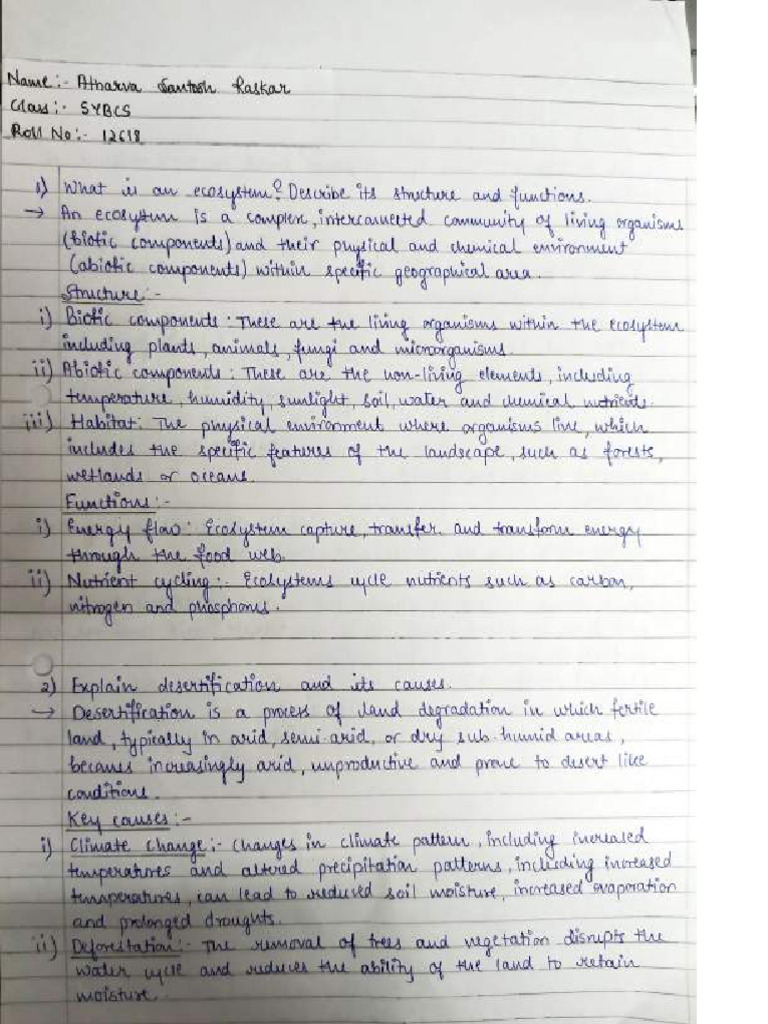 Name:- Atharva Santosh Raskar
Class:- SYBCS
Roll No:- 12618
1) What is an ecosystem? Describe its structure and functions.
→ An ecosystem is a complex, interconnected community of living organisms
(biotic components) and their physical and chemical environment
(abiotic components) within specific geographical area.
Structure:-
i) Biotic components: These are the living organisms within the ecosystem
including plants, animals, fungi and microorganisms.
ii) Abiotic components: These are the non-living elements, including
temperature, humidity, sunlight, soil, water and chemical nutrients.
iii) Habitat: The physical environment where organisms live, which
includes the specific features of the landscape, such as forests,
wetlands or oceans.
Functions:-
i) Energy flow: Ecosystem capture, transfer and transform energy
through the food web.
ii) Nutrient cycling:- Ecosystems cycle nutrients such as carbon,
nitrogen and phosphorus.
2) Explain desertification and its causes.
→ Desertification is a process of land degradation in which fertile
land, typically in arid, semi-arid, or dry sub-humid areas,
becomes increasingly arid, unproductive and prone to desert like
conditions.
Key causes:-
i) Climate Change:- Changes in climate pattern, including increased
temperatures and altered precipitation patterns, including increased
temperatures, can lead to reduced soil moisture, increased evaporation
and prolonged droughts.
ii) Deforestation:- The removal of trees and vegetation disrupts the
water cycle and reduces the ability of the land to retain
moisture.